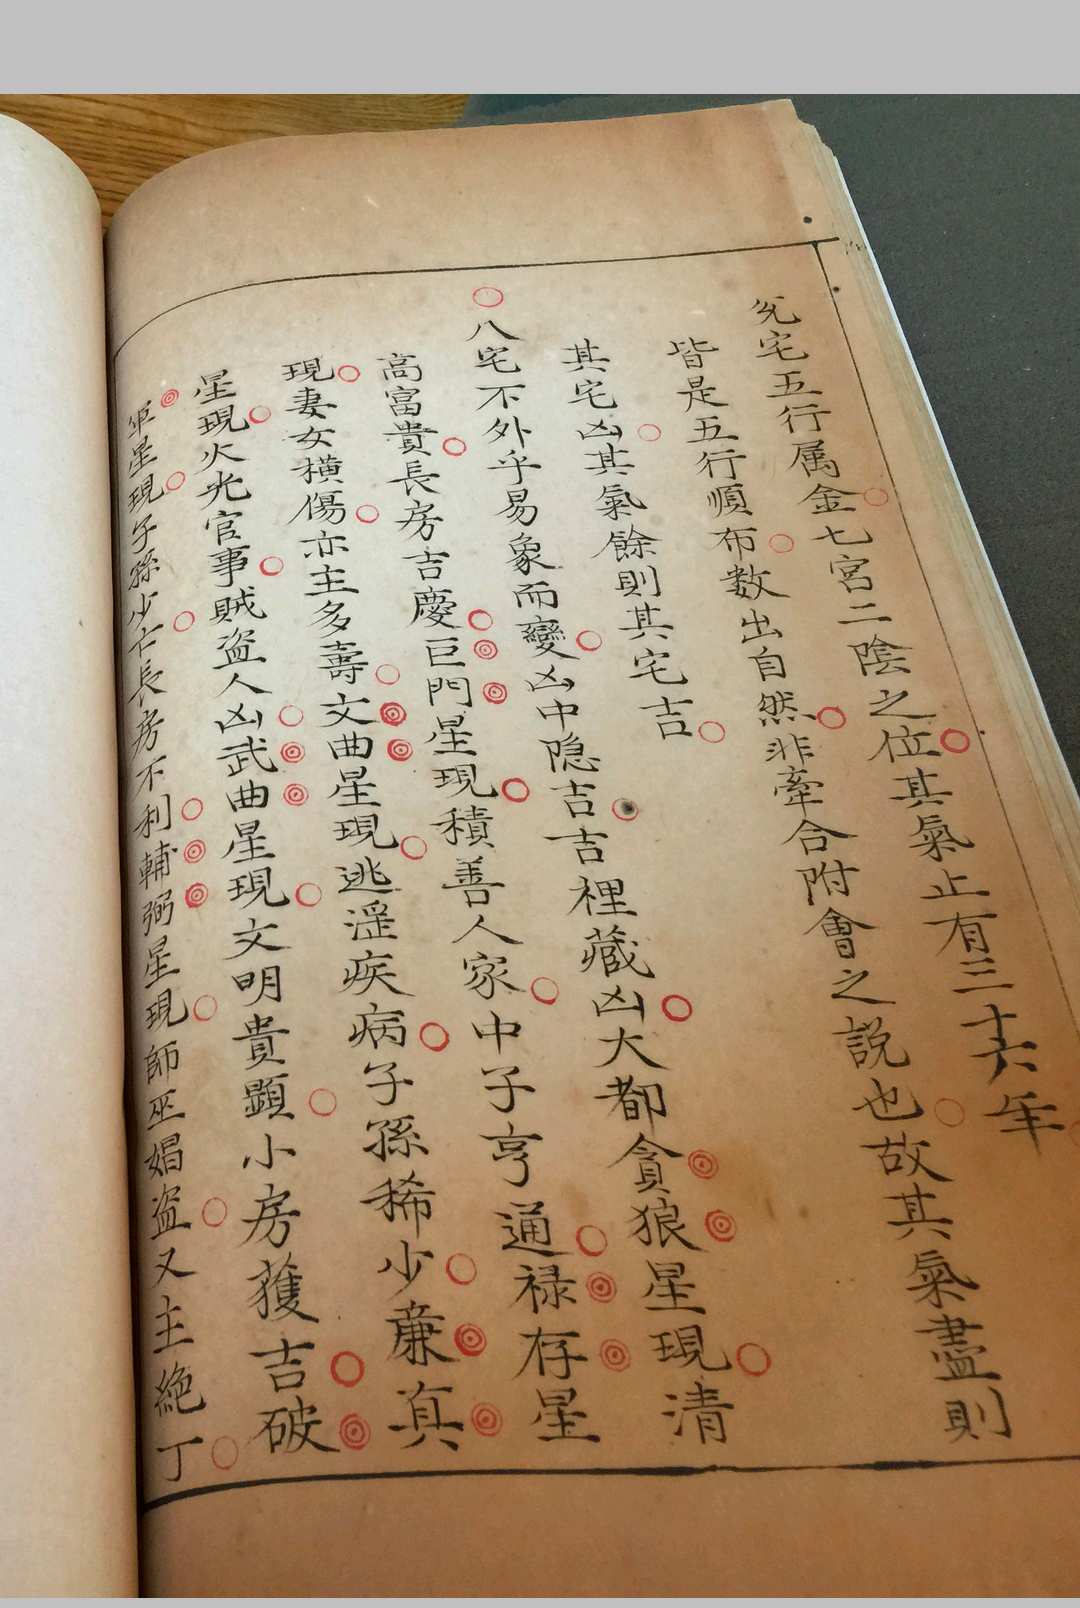 兌宅五行属金七宮二陰之位其氣止有三十六年
皆是五行順布数出自然非牽合附會之説也故其氣盡則
其宅凶其氣餘則其宅吉
八宅不外乎易象而變凶中隐吉吉裡藏凶大都貪狼星現清
高富貴長房吉慶巨門星現積善人家中子亨通禄存星
現妻女橫傷亦主多壽文曲星現逃滛疾病子孫稀少廉真
星現火光官事賊盗人凶武曲星現文明貴顕小房獲吉破
軍星現子孫少亡長房不利輔弼星現師巫娼盗又主絶丁